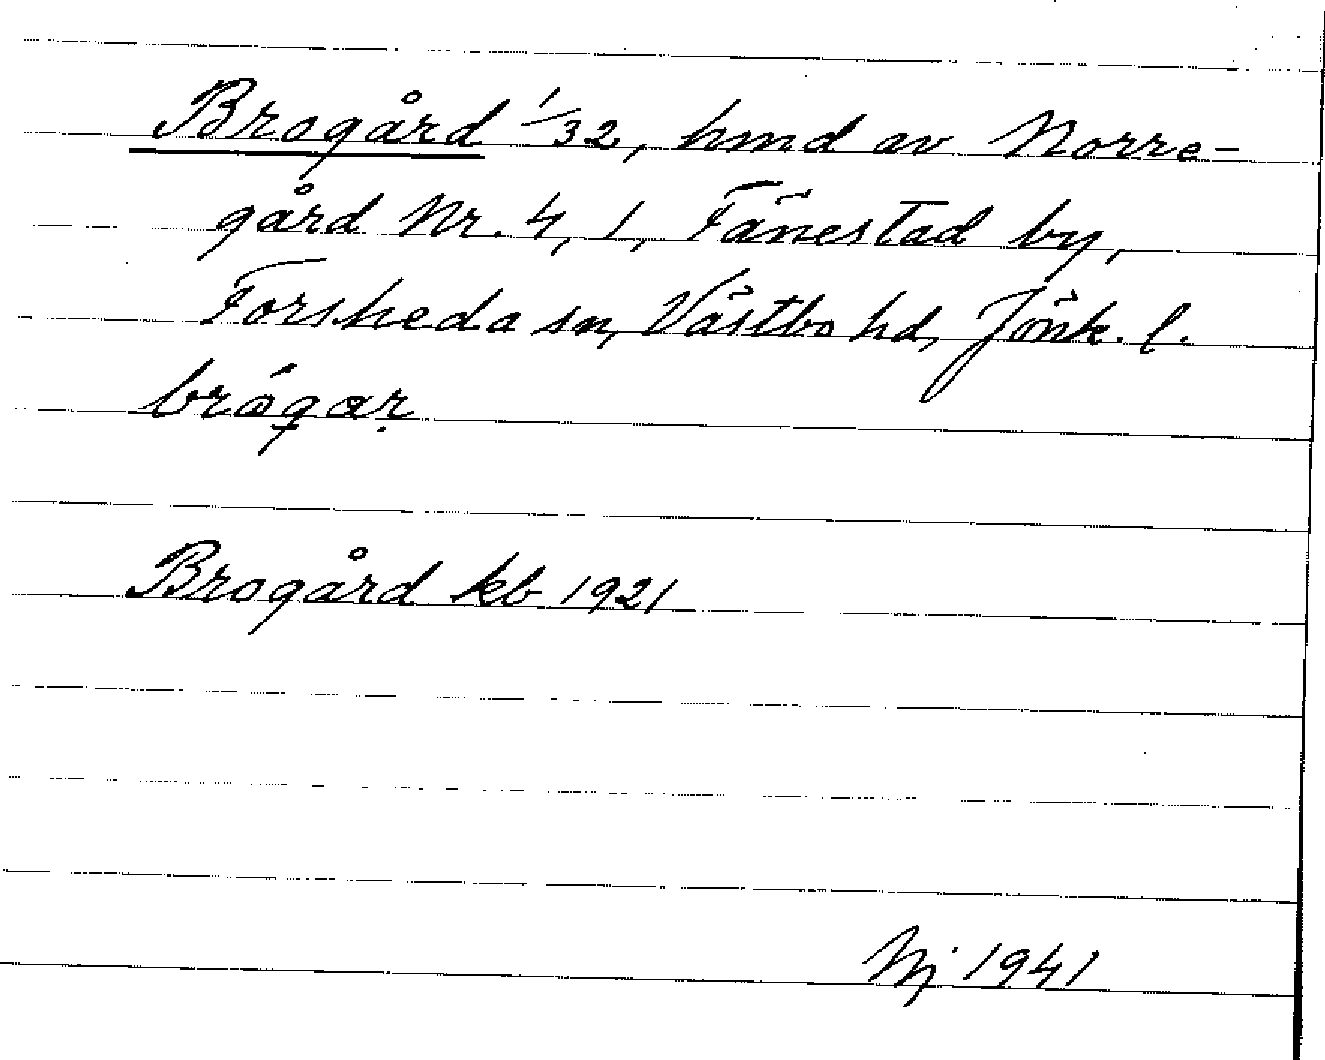 Brogård 1/32, hmd av Norre-
gård Nr. 4, 1, Fänestad by,
Forsheda sn, Västbo hd, Jönk. l.
brógar
Brogård kb 1921
Nj 1941